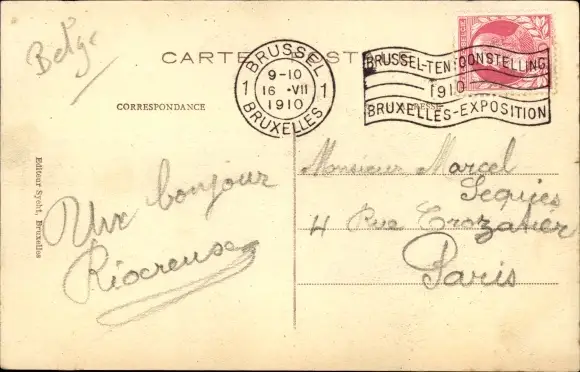 Belge
CARTE POSTALE
BRUSSEL
1 9-10 1
16 -VII
1910
BRUXELLES
BRUSSEL-TENTOONSTELLING
1910
BRUXELLES-EXPOSITION
CORRESPONDANCE
ADRESSE
Editeur Sycht, Bruxelles
Un bonjour
Riocreuse
Monsieur Marcel
Sequies
4 Rue Crozatier
Paris